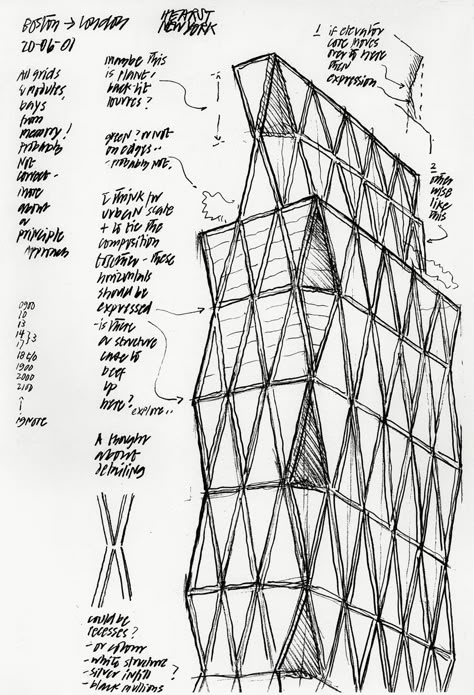 BOSTON → LONDON
20-06-01
HEARST
NEW YORK
All grids
& modules,
bays,
from
memory!
Probably
not
correct -
more
about
a
principle
Approach
0900
10
13
14
17
1900
2000
2100
↑
ignore
maybe this
is plant,
back lit
louvres?
open? or not
on edges..
- probably not.
I think for
urban scale
+ to tie the
composition
together - these
horizontals
should be
expressed
- is there
a structure
case to
beef
up
here? explore..
A thought
about
detailing
could be
recesses?
- or colour
- white structure
- silver infill ?
- black
1 if elevator
core moves
over to here
then
expression
2
other
wise
like
this